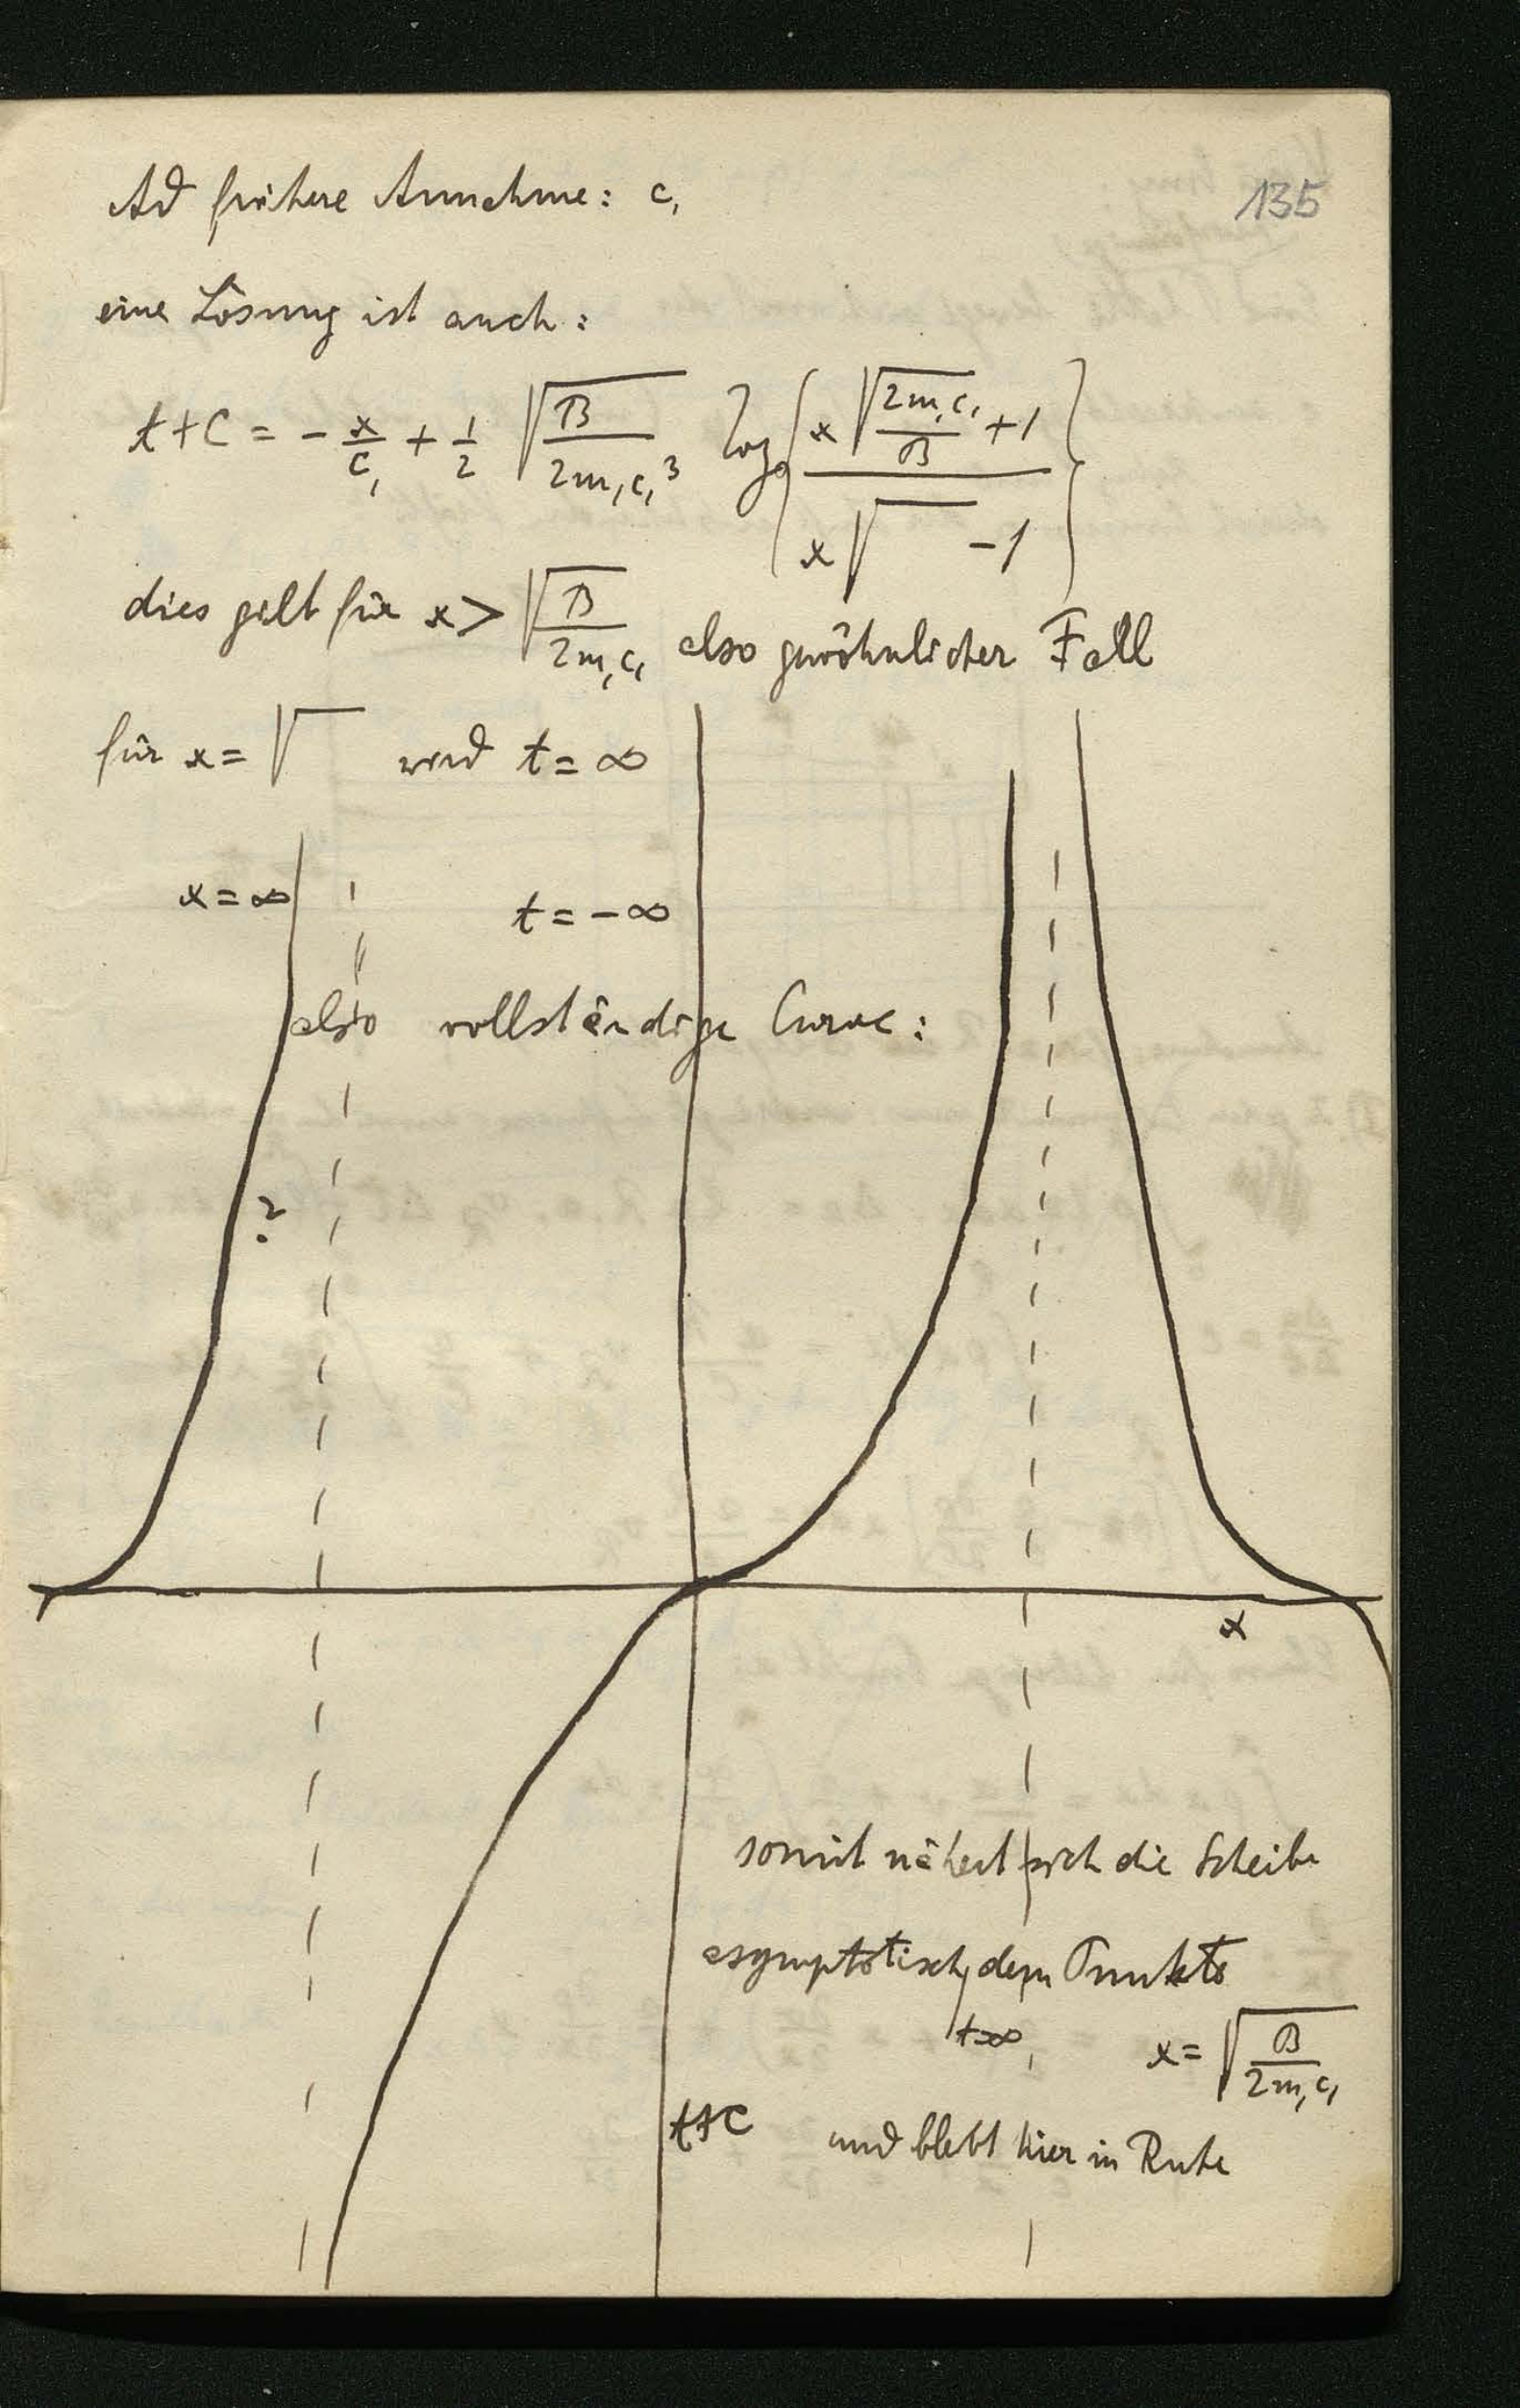 135
Ad frühere Annahme: c₁
eine Lösung ist auch:
t+C = - x/c₁ + 1/2 √(B/(2m₁c₁³)) log { (x√(2m₁c₁/B) +1) / (x√ -1) }
dies gilt für x > √(B/(2m₁c₁)) also gewöhnlicher Fall
für x = √ wird t = ∞
x = ∞ t = -∞
also vollständige Curve:
?
x
somit nähert sich die Scheibe
asymptotisch dem Punkte
t=∞, x = √(B/(2m₁c₁))
t+C und bleibt hier in Ruhe